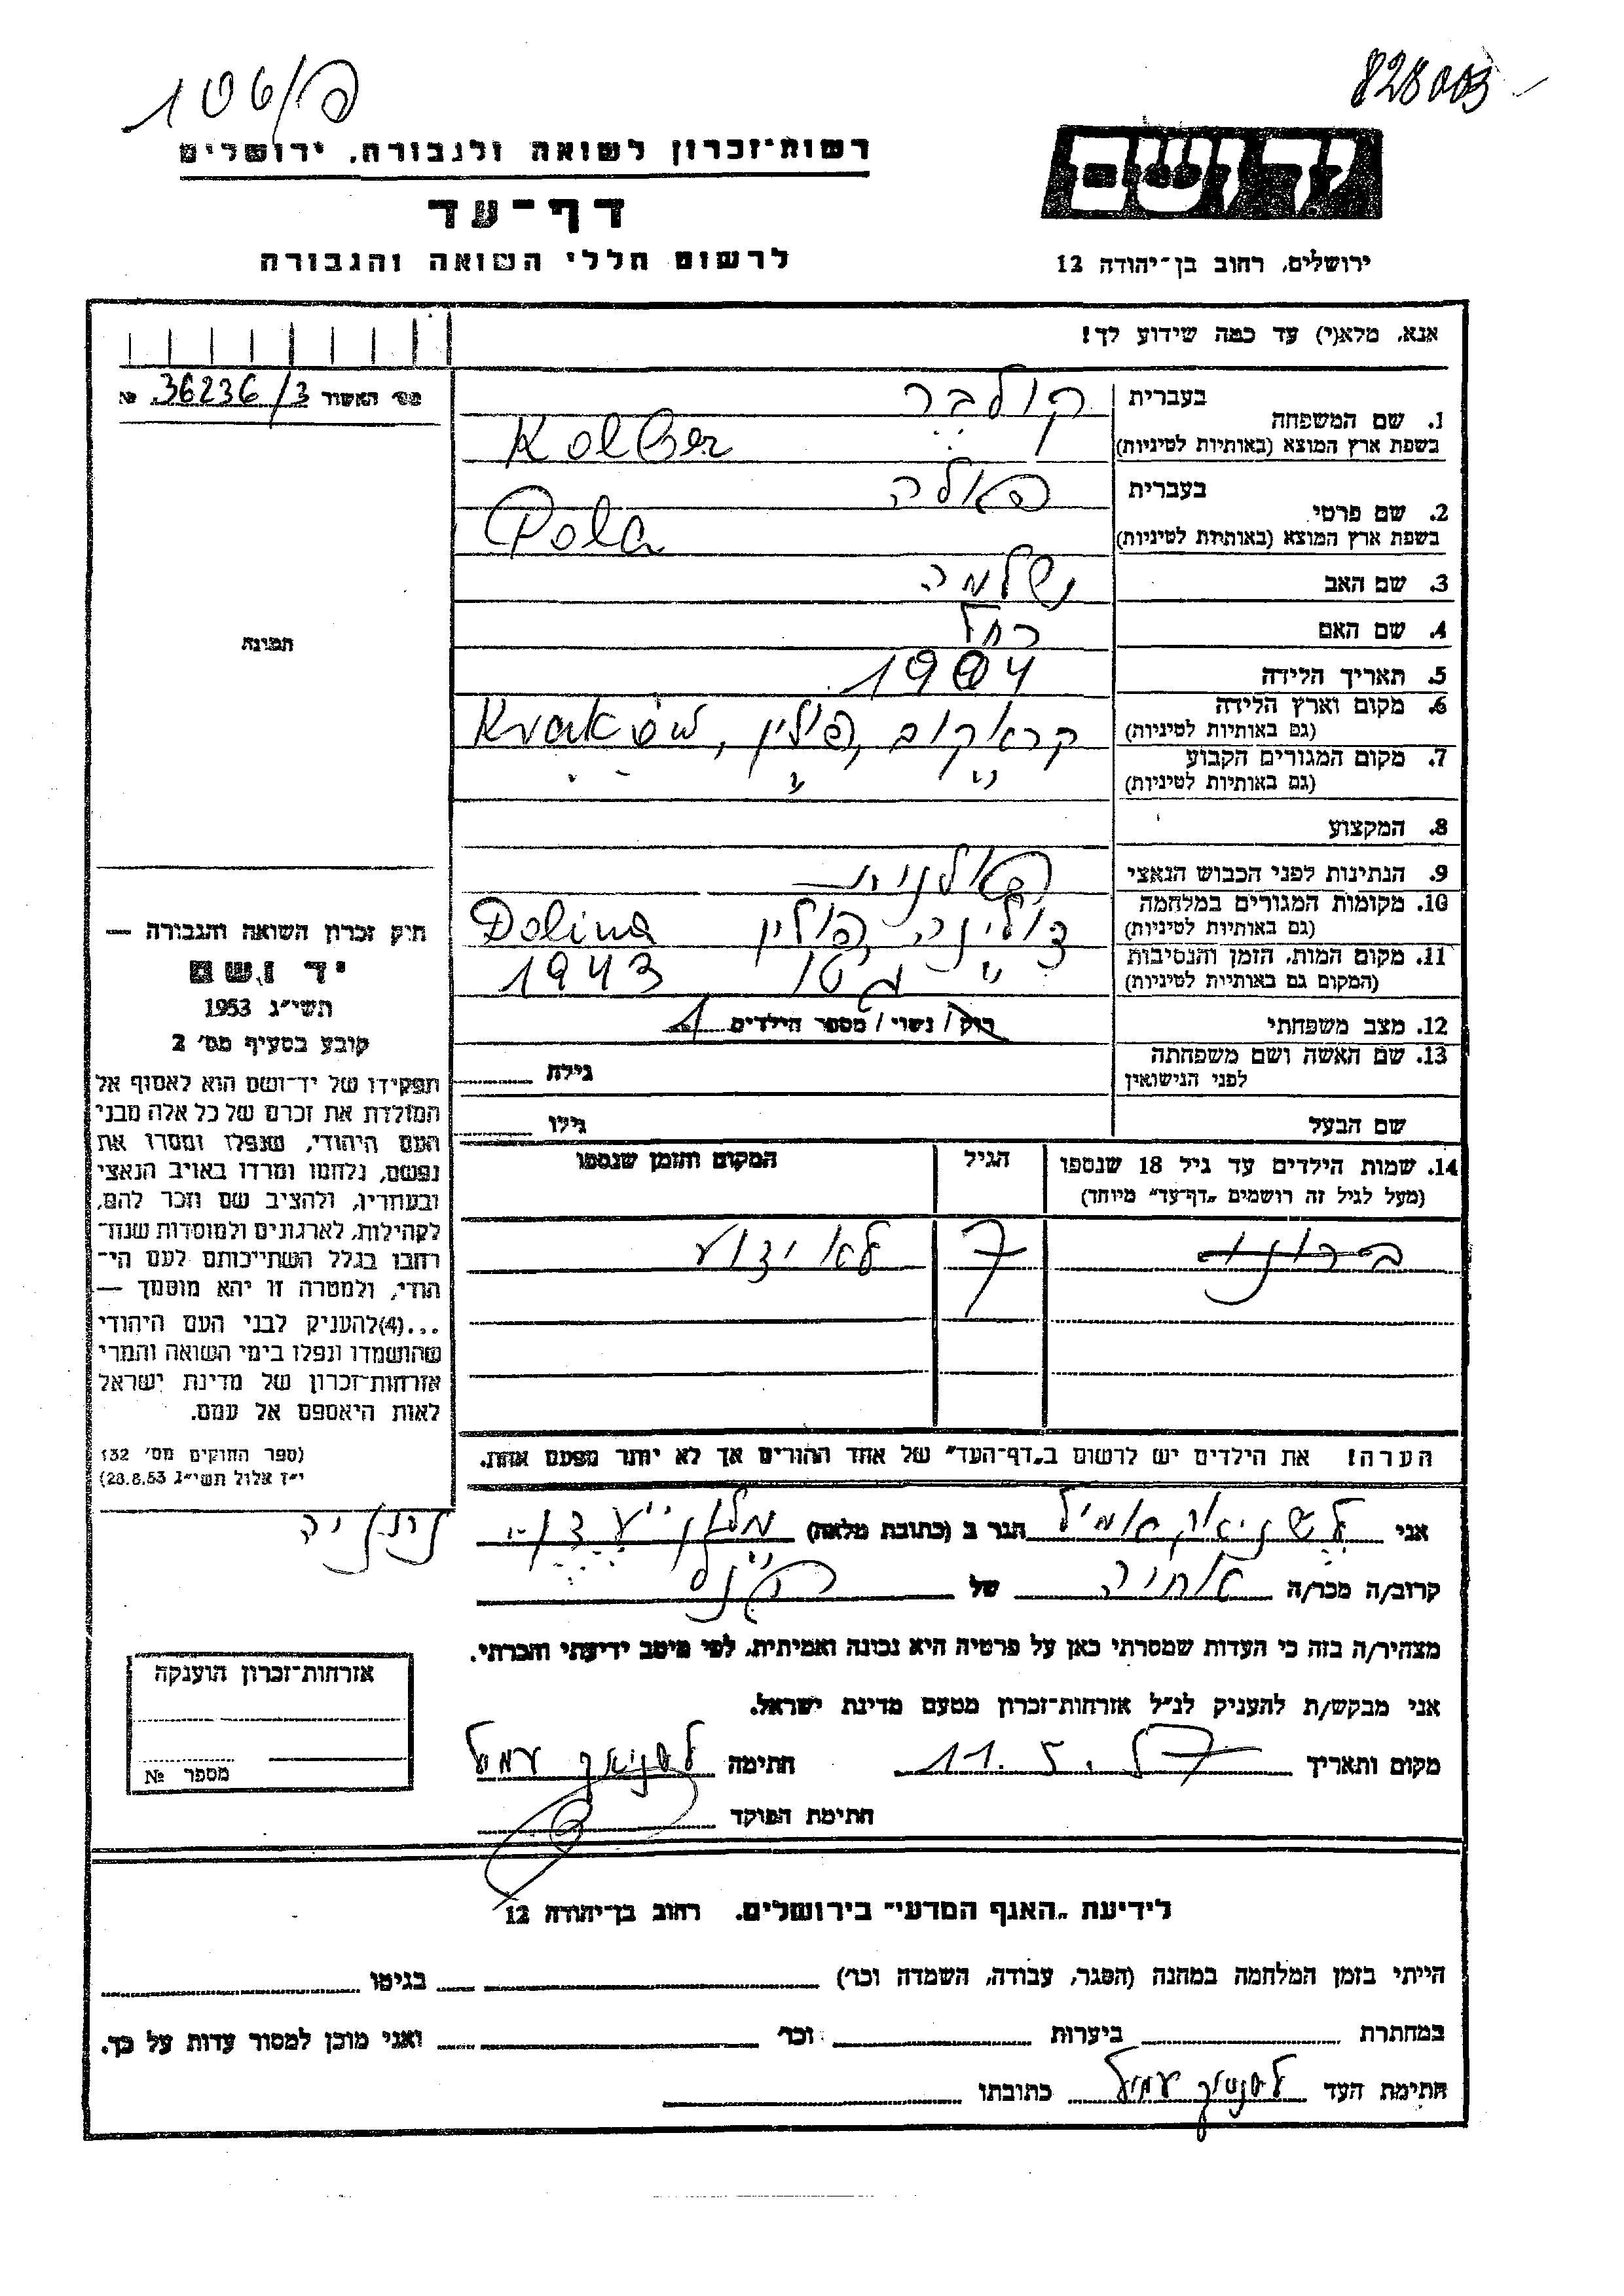 106/פ
828003
רשות־זכרון לשואה ולגבורה, ירושלים
דף־עד
לרשום חללי השואה והגבורה
יד ושם
ירושלים, רחוב בן־יהודה 12
אנא, מלא(י) עד כמה שידוע לך!
מס׳ האשור 36236/3 №
1. שם המשפחה
בעברית קולבר
בשפת ארץ המוצא (באותיות לטיניות) Kolber
2. שם פרטי
בעברית פאלה
בשפת ארץ המוצא (באותיות לטיניות) Pola
3. שם האב שלמה
4. שם האם רחל
5. תאריך הלידה 1904
6. מקום וארץ הלידה קראקוב, פולין, Kraków
(גם באותיות לטיניות)
7. מקום המגורים הקבוע " " "
(גם באותיות לטיניות)
8. המקצוע
9. הנתינות לפני הכבוש הנאצי פולנית
10. מקומות המגורים במלחמה דולינה, פולין Dolina
(גם באותיות לטיניות)
11. מקום המות, הזמן והנסיבות " גטו 1943
(המקום גם באותיות לטיניות)
12. מצב משפחתי רוק/ נשוי/ מספר הילדים 1
13. שם האשה ושם משפחתה גילה
לפני הנישואין
שם הבעל גילו
14. שמות הילדים עד גיל 18 שנספו הגיל המקום והזמן שנספו
(מעל לגיל זה רושמים „דף־עד״ מיוחד)
ברונו 7 לא ידוע
הערה! את הילדים יש לרשום ב„דף־העד״ של אחד ההורים אך לא יותר מפעם אחת.
תמונה
חוק זכרון השואה והגבורה —
יד ושם
תשי״ג 1953
קובע בסעיף מס׳ 2
תפקידו של יד־ושם הוא לאסוף אל
המולדת את זכרם של כל אלה מבני
העם היהודי, שנפלו ומסרו את
נפשם, נלחמו ומרדו באויב הנאצי
ובעוזריו, ולהציב שם וזכר להם,
לקהילות, לארגונים ולמוסדות שנח־
רבו בגלל השתייכותם לעם הי־
הודי, ולמטרה זו יהא מוסמך —
...(4)להעניק לבני העם היהודי
שהושמדו ונפלו בימי השואה והמרי
אזרחות־זכרון של מדינת ישראל
לאות היאספם אל עמם.
(ספר החוקים מס׳ 132
י״ז אלול תשי״ג 28.8.53)
אני אמיל הגר ב (כתובת מלאה) מלון נתניה
קרוב/ה מכר/ה אחיה של
מצהיר/ה בזה כי העדות שמסרתי כאן על פרטיה היא נכונה ואמיתית, לפי מיטב ידיעתי והכרתי.
אני מבקש/ת להעניק לנ״ל אזרחות־זכרון מטעם מדינת ישראל.
מקום ותאריך 11.5.57 חתימה
חתימת הפוקד
אזרחות־זכרון הוענקה
מספר №
לידיעת „האגף המדעי״ בירושלים, רחוב בן־יהודה 12
הייתי בזמן המלחמה במחנה (הסגר, עבודה, השמדה וכו׳) בגיטו
במחתרת ביערות וכו׳ ואני מוכן למסור עדות על כך.
חתימת העד כתובתו